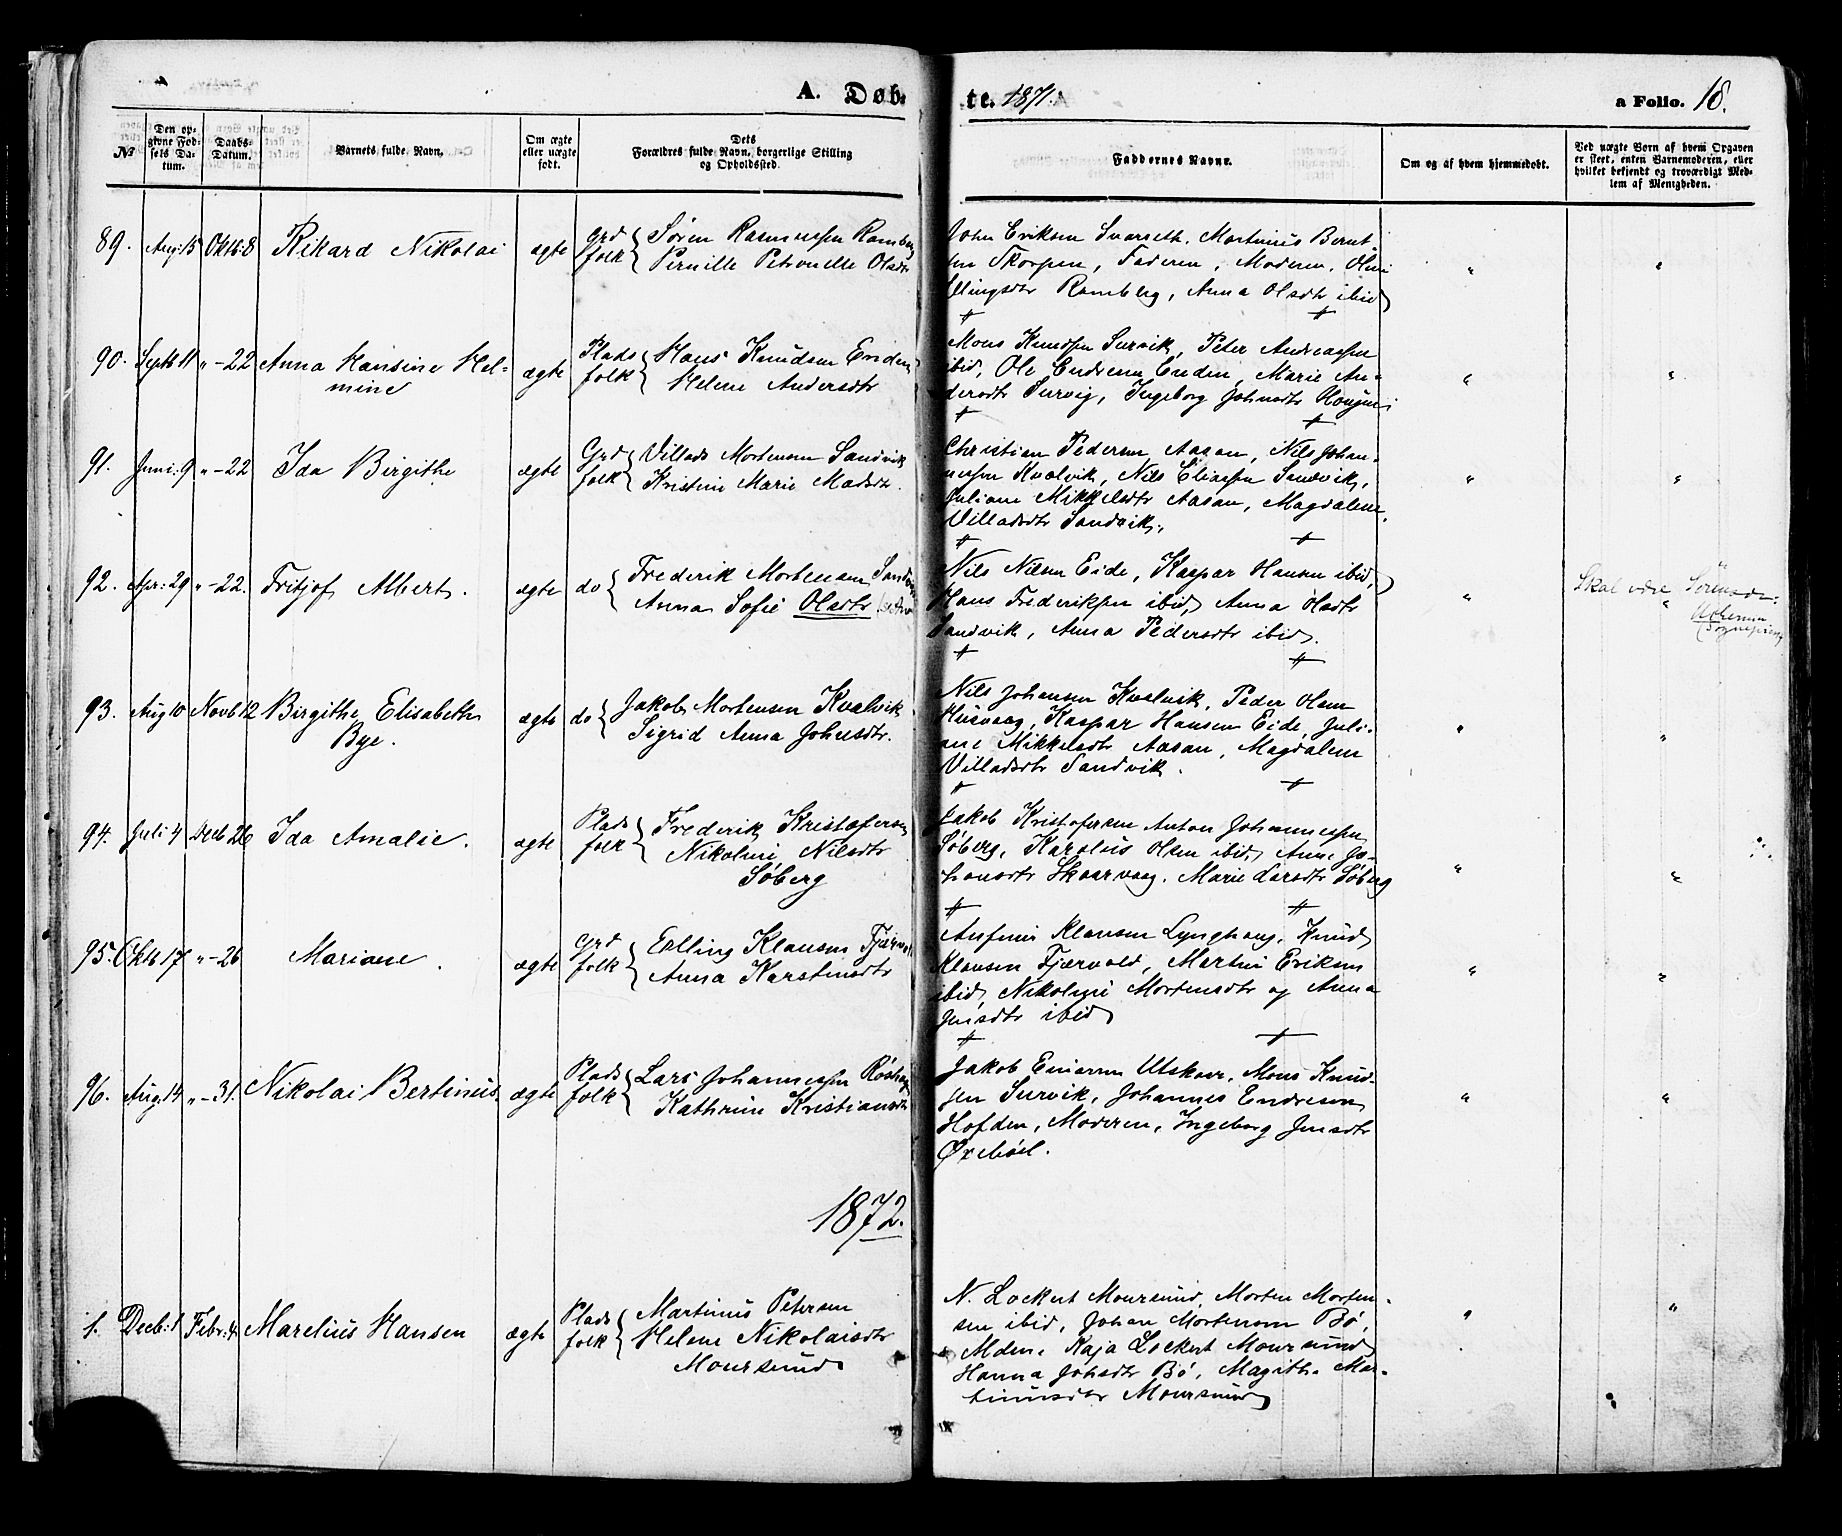 A. Døb- te. 1871.
a Folio. 18.
№
Den op-
givne Fød-
sels Da-
tum.
Daabs-
Datum.
Barnets fulde Navn.
Om ægte
eller uægte
født.
Dets
Forældres fulde Navn, borgerlige Stilling
og Opholdssted.
Faddernes Navne.
Om og af hvem hjemmedøbt.
Ved uægte Børn af hvem Opgaven
er skeet, enten Barnemoderen, eller
hvilket bekjendt og troværdigt Med-
lem af Menigheden.
89. Aug: 15 Oktb: 8 Rikard Nikolai ægte Grd folk
Søren Rasmussen Ramberg
Pernille Petronelle Olsdtr
John Eriksen Svarseth, Martinus Bernt-
sen Skorpen, Faderen, Moderen,
Ellingsdtr Ramberg, Anna Olsdtr ibid
90. Septb 11 " - 22 Anna Hansine Hel-
mine
ægte Plads folk
Hans Knudsen Enden
Helene Andersdtr
Mons Knudsen Survik, Peter Andreassen
ibid, Ole Endresen Enden, Marie An-
dersdtr Survig, Ingeborg Johnsdtr
91. Juni: 9 " - 22 Ida Birgithe ægte Grd folk
Villads Mortensen Sandvik
Kristine Marie Madsdtr.
Christian Pedersen Aasan, Nils Johan-
nessen Kvalvik, Nils Eliassen Sandvik,
Juliane Mikkelsdtr Aasan, Magdalene
Villadsdtr Sandvik.
92. Apr: 29 " - 22. Fritjof Albert. ægte do
Frederik Mortensen Sandvik
Anna Sofie Olsdtr
Nils Nilsen Eide, Kaspar Hansen ibid,
Hans Frederiksen ibid, Anna Olsdtr
Sandvik, Anna Pedersdtr ibid.
Skal være Sørensdtr:
93. Aug 10 Novb 12 Birgithe Elisabeth
Bye.
ægte do
Jakob Mortensen Kvalvik
Sigrid Anna Johnsdtr.
Nils Johansen Kvalvik, Peder Olsen
Husvaag, Kaspar Hansen Eide, Juli-
ane Mikkelsdtr Aasan, Magdalene
Villadsdtr Sandvik.
94. Juli 4 Decb 26 Ida Amalie. ægte Plads folk
Frederik Kristofersen
Nikoline Nilsdtr
Søberg
Jakob Kristofersen Anton Johannessen
Søberg, Karolius Olsen ibid, Anne Jo-
hansdtr Skaarvaag, Marie Larsdtr Søberg
95. Oktb 17 " - 26 Mariane. ægte Grd folk
Elling Klausen Fjærvoll
Anna Karstensdtr
Anfinn Klausen Lynghaug, Knud
Klausen Fjærvold, Martin Eriksen
ibid, Nikoline Mortensdtr og Anna
Jensdtr ibid
96. Aug: 14 " - 31. Nikolai Bertinus. ægte Plads folk
Lars Johannessen
Kathrine Kristiansdtr
Jakob Einarsen Utskor, Mons Knud-
sen Survik, Johannes Endresen
Hofden, Moderen, Ingeborg Jensdtr
1872.
1. Decb: 1 Febr: 4. Marelius Hansen ægte Plads folk
Martinus Petersen
Helene Nikolaisdtr
Moursund
N. Lockert Moursund, Morten Morten-
sen ibid, Johan Mortensen Bø,
Kaja Lockert Moursund
Hanna Johsdtr Bø, Magith. Mar-
tinusdtr Moursund